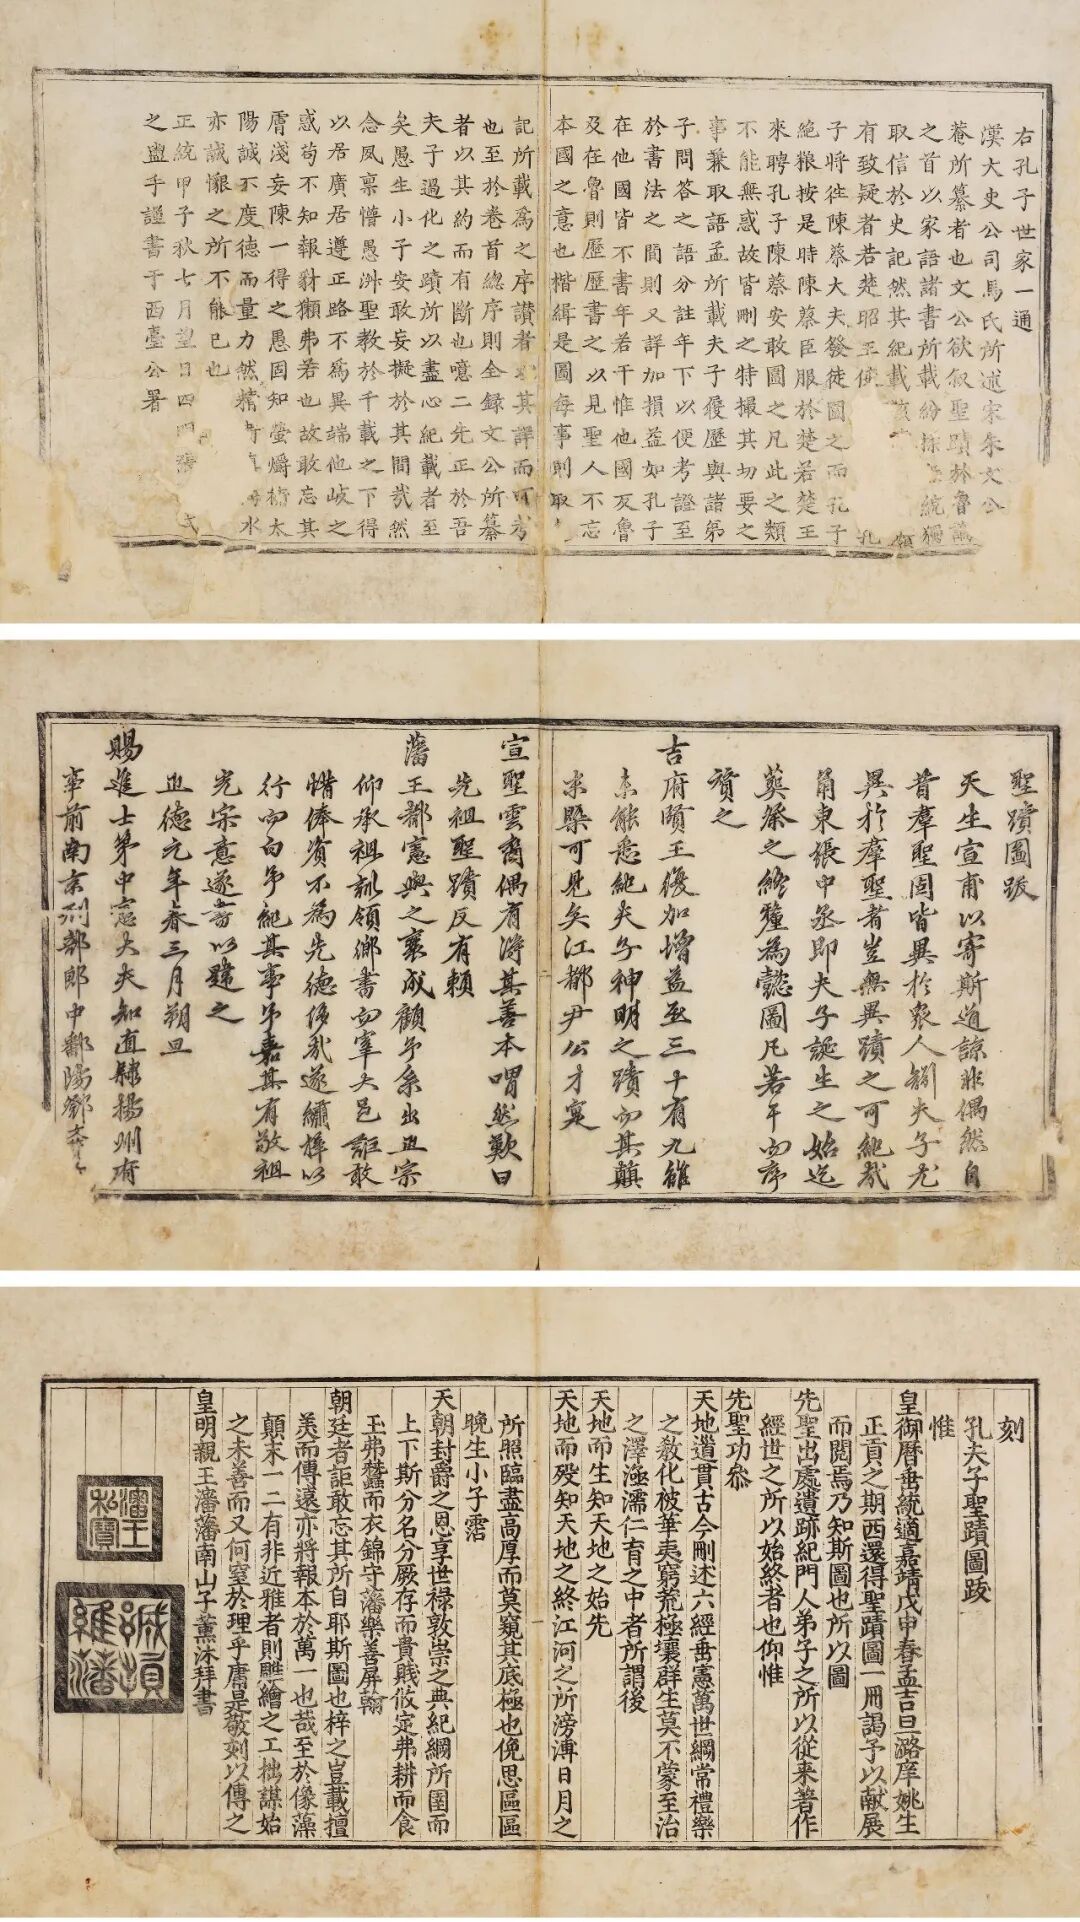 右孔子世家一通
漢大史公司馬氏所述宋朱文公
菴所纂者也文公欲叙聖蹟於魯
之首以家語諸書所載紛採統獨
取信於史記然其紀載
有致疑者若楚昭王使孔
子將往陳蔡大夫發徒圍之而孔子
絶粮按是時陳蔡臣服於楚若楚王
來聘孔子陳蔡安敢圖之凡此之類
不能無惑故皆刪之特撮其切要之
事兼取語孟所載夫子履歷與諸弟
子問答之語分註年下以便考證至
於書法之間則又詳加損益如孔子
在他國皆不書年若干惟他國反魯
及在魯則歷歷書之以見聖人不忘
本國之意也楷緝是圖每事則取
記所載爲之序讃者其詳而可考
也至於卷首總序則全録文公所纂
者以其約而有斷也噫二先正於吾
夫子過化之蹟所以盡心紀載者至
矣愚生小子安敢妄擬於其間㢤然
念夙禀懵愚洲聖教於千載之下得
以居廣居遵正路不爲異端他岐之
惑苟不知報豺獺弗若也故敢忘其
膚淺妄陳一得之愚固知螢爝裨太
陽誠不度德而量力然水
亦誠懶之所不能已也
正統甲子秋七月望日四明
之盥手謹書于西臺公署
聖蹟圖跋
天生宣甫以寄斯道諒非偶然自
昔羣聖固皆異於衆人矧夫子尤
異於羣聖者豈無異蹟之可紀哉
甬東張中丞即夫子誕生之始迄
葬祭之終釐為懿圖凡若干而序
賛之
吉府頤王復加增益至三十有九雖
未能悉紀夫子神明之蹟而其顛
末槩可見矣江都尹公才寔
宣聖雲裔偶有淂其善本喟然歎曰
先祖聖蹟反有賴
藩王都憲與之褒成顧予系出正宗
仰承祖訓領鄉書而宰大邑詎敢
惜俸資不為先德侈哉遂繡梓以
行而向予紀其事予嘉其有敬祖
光宗意遂書以疑之
正德元年春三月朔旦
賜進士第中憲大夫知直隸揚州府
事前南京刑部郎中鄱陽鄧
刻
孔夫子聖蹟圖跋
惟
皇御曆垂統適嘉靖戊申春孟吉旦潞庠姚生
正貢之期西還得聖蹟圖一冊謁予以献展
而閱焉乃知斯圖也所以圖
先聖出處遺跡紀門人弟子之所以從来著作
經世之所以始終者也仰惟
先聖功叅
天地道貫古今刪述六經垂憲萬世綱常禮樂
之敎化被華夷窮荒極壤群生莫不蒙至治
之澤涵濡仁育之中者所謂後
天地而生知天地之始先
天地而殁知天地之終江河之所滂漙日月之
所照臨盡高厚而莫窺其底極也俛思區區
晚生小子霑
天朝封爵之恩享世禄敦崇之典紀綱所囿而
上下斯分名分厥存而貴賎攸定弗耕而食
玉弗蠶而衣錦守藩樂善屏翰
朝廷者詎敢忘其所自耶斯圖也梓之豈載擅
美而傳遠亦將報本於萬一也哉至於像藻
顛末一二有非近雅者則雕繪之工拙謀始
之未善而又何窒於理乎庸是敬刻以傳之
皇明親王瀋藩南山子薰沐拜書
瀋王私寳